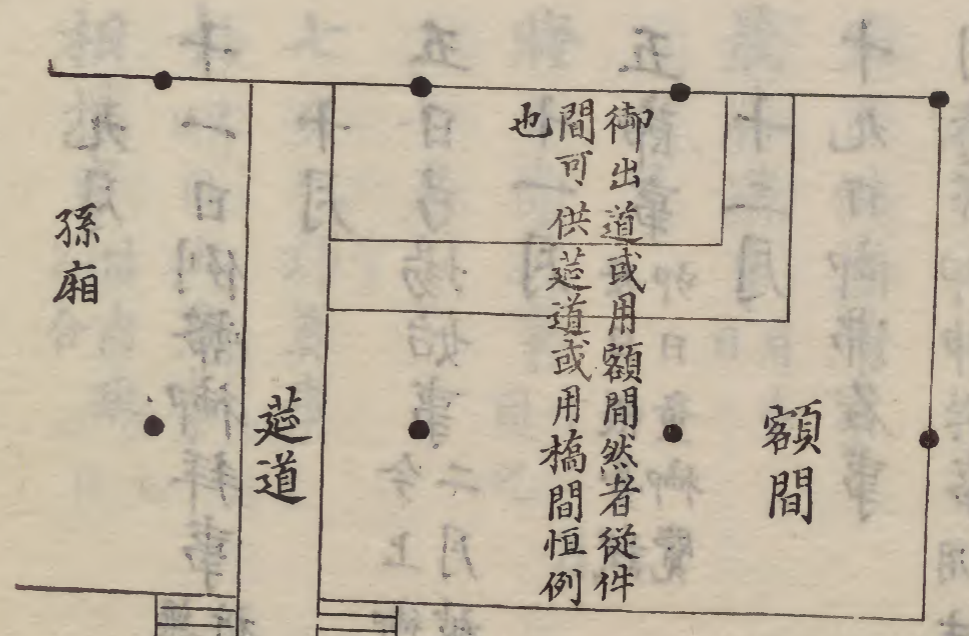 額間
御出道或用額間然者従件
間可供莚道或用橋間恒例
也
莚道
孫廂